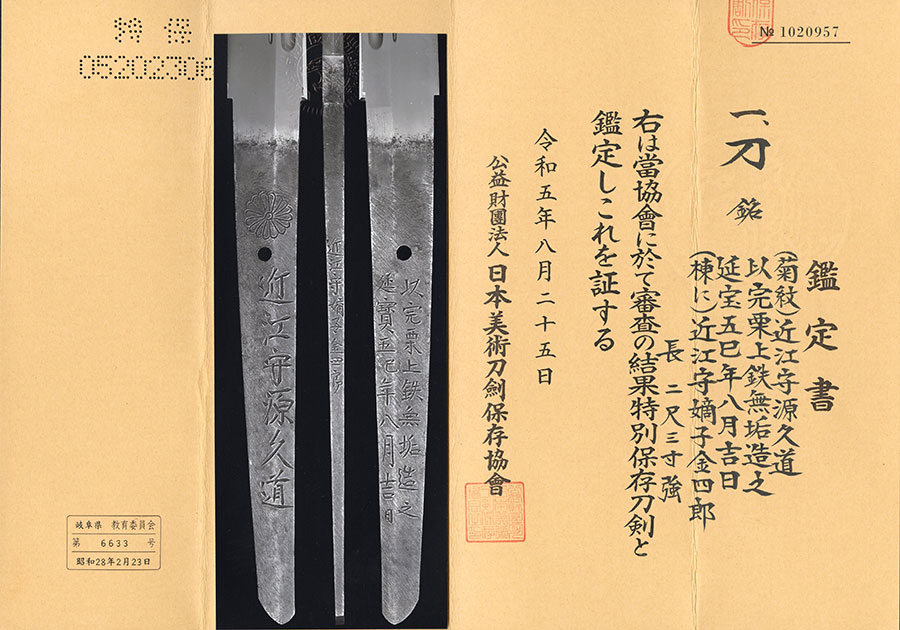 № 1020957
鑑定書
一、刀 銘
(菊紋)近江守源久道
以完栗上鉄無垢造之
延宝五巳年八月吉日
(棟に)近江守嫡子金四郎
長 二尺三寸強
右は當協會に於て審査の結果特別保存刀剣と
鑑定しこれを証する
令和五年八月二十五日
公益財團法人 日本美術刀劍保存協會
特保
05202306
以完栗上鉄無垢造之
延寶五巳年八月吉日
近江守嫡子金四郎
近江守源久道
岐阜県 教育委員会
第 6633 号
昭和28年2月23日